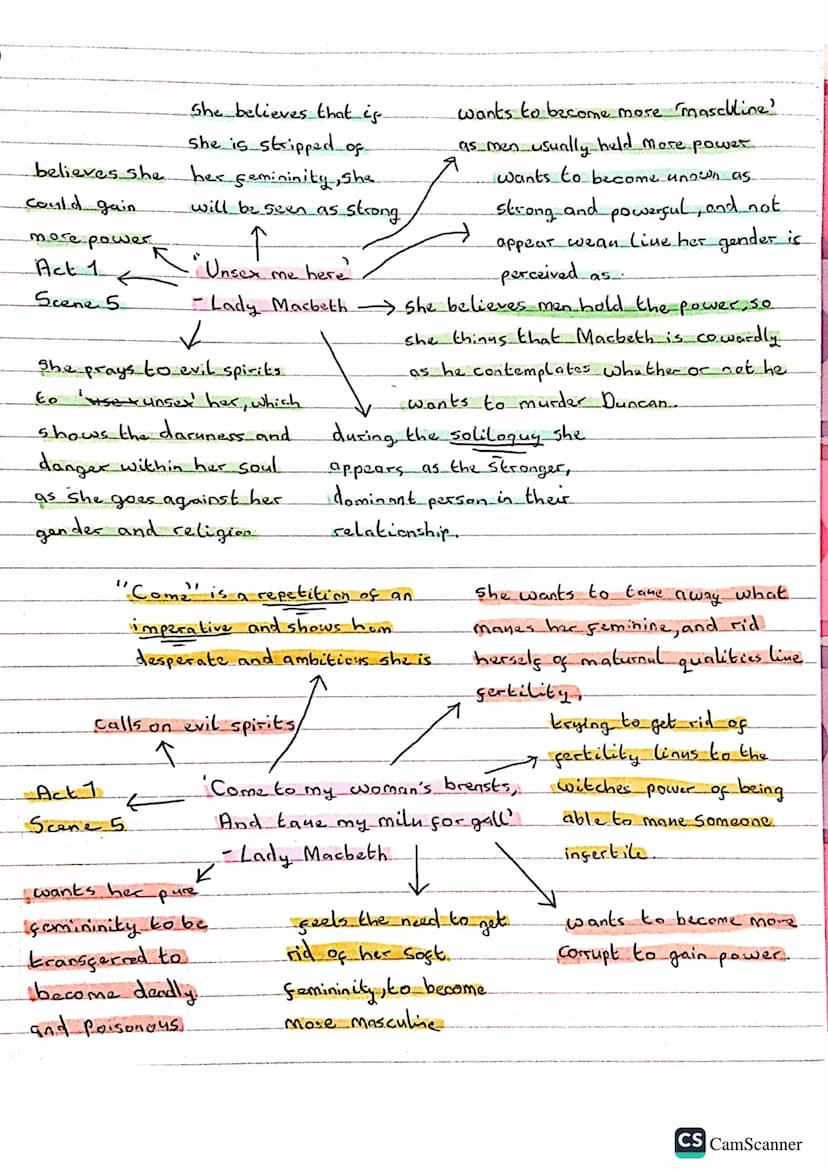 She believes that if
she is stripped of
her femininity, she
will be seen as strong
wants to become more 'masculine'
as men usually held more power
wants to become known as
strong and powerful, and not
appear weak like her gender is
perceived as.
believes she
could gain
more power
Act 1
Scene 5
'Unsex me here'
- Lady Macbeth
she believes men hold the power, so
she thinks that Macbeth is cowardly
as he contemplates whether or not he
wants to murder Duncan.
She prays to evil spirits
to 'unsex' her, which
shows the darkness and
danger within her soul
as she goes against her
gender and religion
during the soliloquy she
appears as the stronger,
dominant person in their
relationship.
"Come" is a repetition of an
imperative and shows how
desperate and ambitious she is
she wants to take away what
makes her feminine, and rid
herself of maternal qualities like
fertility,
calls on evil spirits
trying to get rid of
fertility links to the
witches power of being
able to make someone
infertile.
Act 1
Scene 5
'Come to my woman's breasts,
And take my milk for gall'
- Lady Macbeth
wants her pure
femininity to be
transferred to
become deadly
and poisonous
feels the need to get
rid of her soft
femininity, to become
more masculine
wants to become more
corrupt to gain power.
CS CamScanner